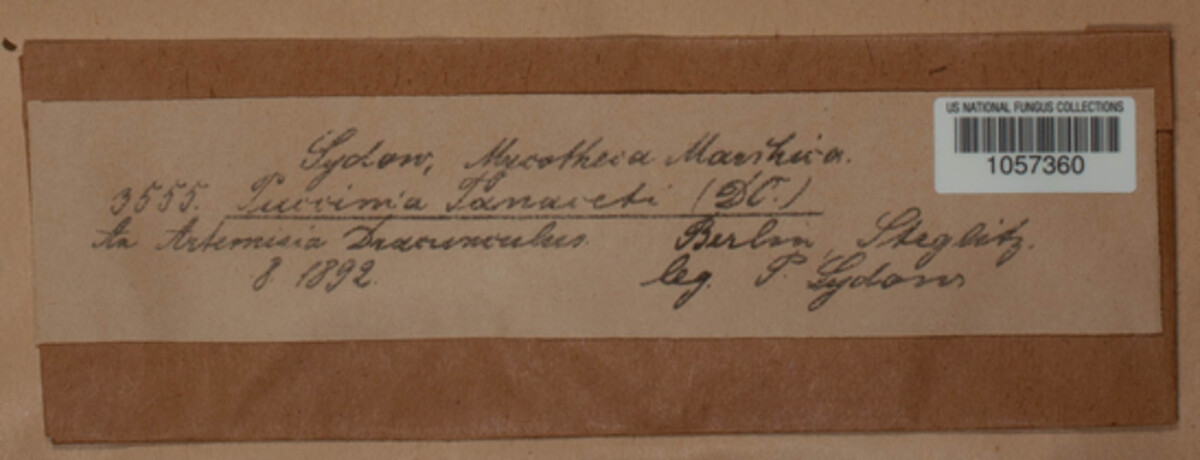 US NATIONAL FUNGUS COLLECTIONS
1057360
Sydow, Mycotheca Marchica.
3555. Puccinia Tanaceti (DC.)
An Artemisia Dracunculus. Berlin, Steglitz.
8. 1892. leg. P. Sydow